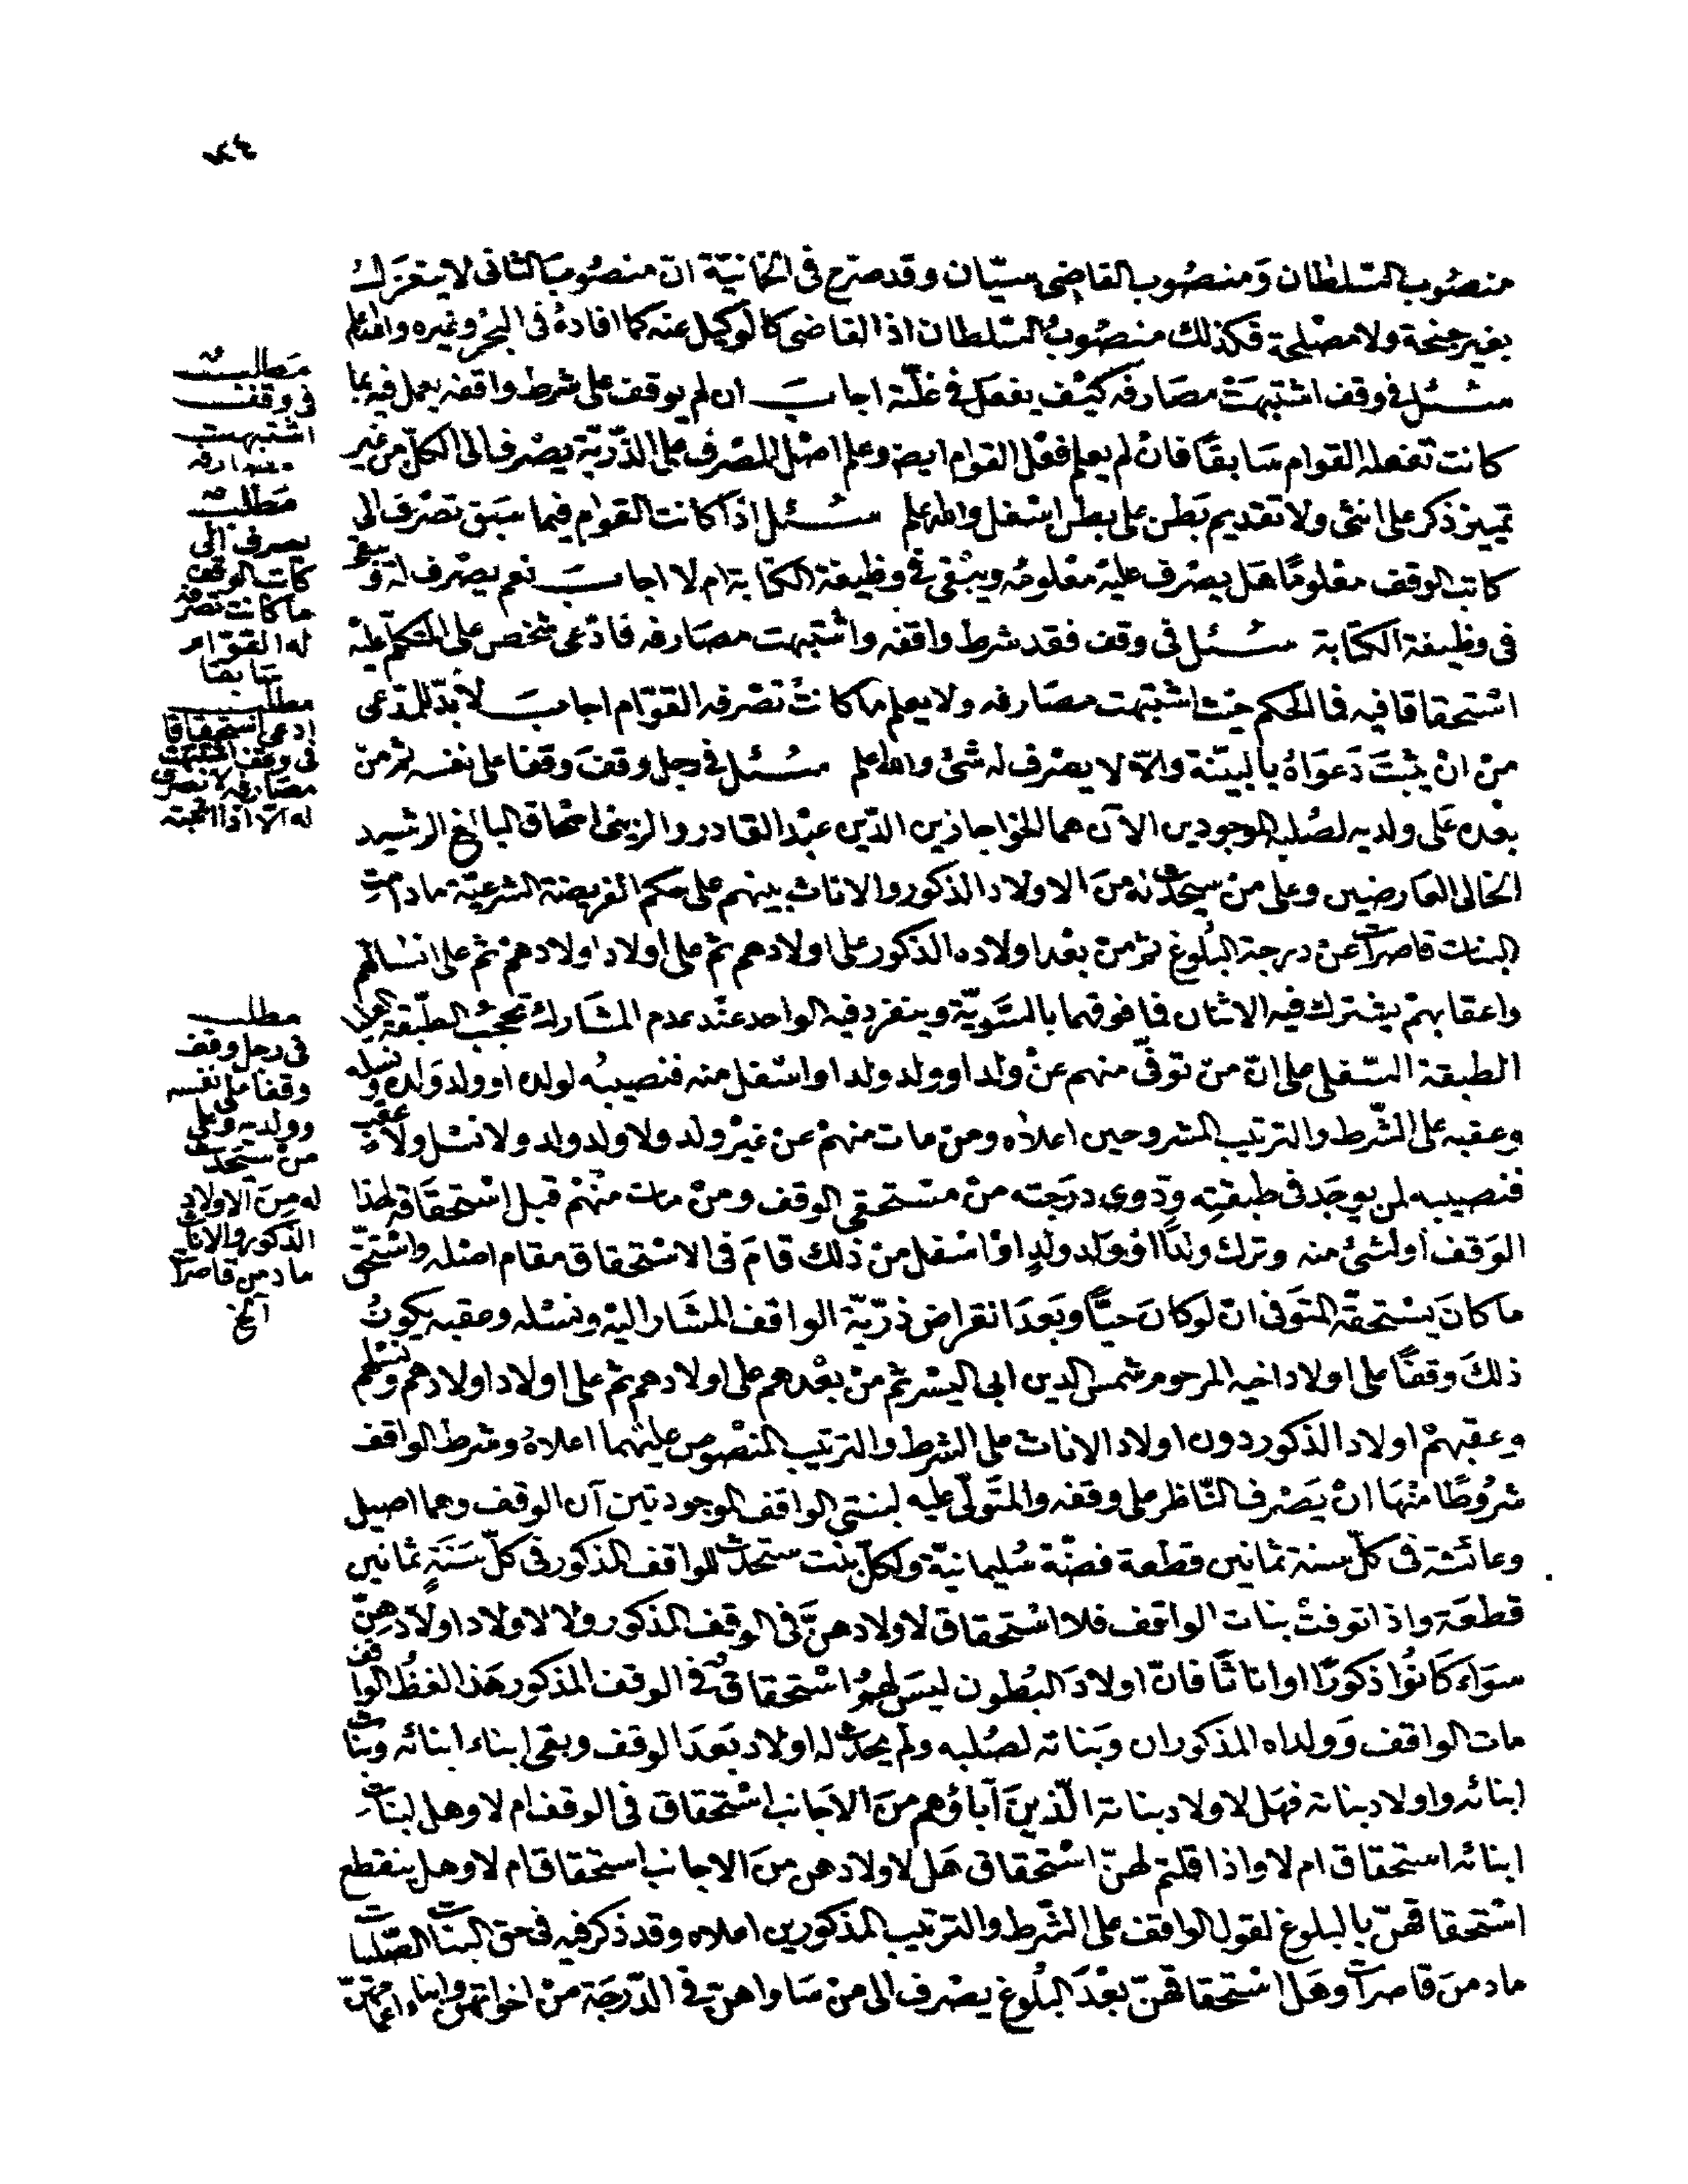 منصُوب السّلطان وَمنصُوب القاضى سيّان وقد صرّح فى الخانيّة ان منصُوب الثانى لا ينعَزل
بغير جنحة ولا مصْلحة فكذلك منصُوبُ السّلطان اذ القاضى كالوكيل عنه كما افادهُ فى البحْر وغيره والله اعلم
سئل فى وقف اشتبهَتْ مصَارفه كيْف يفعَل فى غلّته اجابَ ان لم يوقف على شرط واقفه يعمل فيه بما
كانت تفعله القوام سَابقًا فانْ لم يعلم فعْل القوام ايضا وعلم اصْل المصْرف على الذّرّيّة يصْرف الى الكلّ من غير
تمييز ذكر على انثى ولا تقديم بَطن على بطن اسْفل والله اعلم سُئل اذا كانت القوام فيما سَبق تصْرف الى
كاتب الوقف معْلومًا هَل يصْرف عليْه معْلومُه ويبْقى فى وظيفة الكتابة ام لا اجابَ نعم يصْرف له ويبقى
فى وظيفة الكتابة سُئل فى وقف فقد شرط واقفه واشتبهت مصَارفه فادّعى شخص على المتكلّم عليْه
اسْتحقاقا فيه فما الحكم حيث اشتبهت مصَارفه ولا يعلم ما كانتْ تصْرفه القوّام اجابَ لا بدّ للمدّعى
منْ انْ يثبتَ دَعوَاهُ بالبيّنة والّا لا يصْرف له شئ والله اعلم سُئل فى رجل وقفَ وقفا على نفسه ثم من
بعده عَلى ولديه لصُلبه الموجودين الآن هما الخواجا زين الدّين عبْد القادر والزينى اسْحاق البالغ الرشيد
الخالى العارضين وعلى منْ سيحدث له منَ الاولاد الذكور والاناث بينهم على حكم الفريضة الشرعيّة ما دامت
البنات قاصرات عنْ درجة البُلوغ ثمّ من بعْد اولاده الذكور على اولادهم ثم على اولاد اولادهمْ ثم على انسَالهم
واعقابهمْ يشترك فيه الاثنان فما فوقهما بالسَّويّة وينفرد فيه الواحد عنْد عدم المشَارك تحجُب الطّبقة العليا
الطبقة السّفلى على انّ منْ توفّى منهم عنْ ولد او ولد ولد او اسْفل منه فنصيبُه لولده او ولد ولده ونسله
وعقبه على الشّرط والترتيب المشروحين اعلاه ومنْ مات منهمْ عن غيْر ولد ولا ولد ولد ولا نسْل ولا عقب
فنصيبه لمن يوجَد فى طبقتِه وذوى درَجته منْ مسْتحقى الوقف ومنْ مات منْهمْ قبل اسْتحقَاقه لهذا
الوَقف أو لشئ منه وترك ولدًا اوْ وَلد ولدٍ اوْ اسْفل منْ ذلك قامَ فى الاسْتحقاق مقام اصْله واسْتحقّ
ما كانَ يسْتحقّه المتوَفى ان لو كانَ حيًّا وبَعدَ انقراض ذرّيّة الواقف المشَار اليْه ونسْله وعقبه يكونُ
ذلكَ وقفًا على اولاد اخيه المرحوم شمس الدين ابى اليسْر ثم منْ بعْدهم على اولادهم ثم على اولاد اولادهم ونسْلهم
وعقبهمْ اولاد الذكور دون اولاد الاناث على الشرط والترتيب المنصُوص عليْهما اعلاهُ وشرط الواقف
شرُوطًا منْهَا انْ يَصْرف النّاظر على وقفه والمتولّى عليه لبنتى الواقف الموجودتين آن الوقف وهما اصيل
وعائشة فى كلّ سنة ثمانين قطعة فضّة سُليمانيّة ولكلّ بنْت ستحدث للواقف المذكور فى كلّ سَنَةٍ ثمانين
قطعَة واذا توفتْ بنات الواقف فلا اسْتحقاق لاولادهنَّ فى الوقف المذكور ولا لاولاد اولادهنّ
سوَاء كَانُوا ذكورًا او اناثًا فانّ اولادَ البُطون ليسَ لهمْ اسْتحقاقٌ فى الوقف المذكور هَذا لفظُ الواقف
مات الواقف وَولداه المذكوران وَبناته لصُلبه ولمْ يحدث له اولاد بَعدَ الوقف وبقى ابناء ابنائه وبنات
ابنائه واولاد بناته فهَل لاولاد بناته الّذينَ آباؤهم منَ الاجَانب اسْتحقاق فى الوقف ام لا وهل لبنات
ابنائه استحقاق ام لا واذا قلتم لهنّ اسْتحقاق هَل لاولادهن منَ الاجانب استحقاق ام لا وهل ينقطع
اسْتحقاقهنّ بالبلوغ لقول الواقف على الشّرط والترتيب المذكورين اعلاه وقد ذكر فيه فى حق البنات الصّلبيات
ما دمنَ قاصرات وهَل اسْتحقاقهنّ بعْدَ البُلوغ يصْرف الى منْ سَاواهنّ فى الدّرجَة منْ اخواتهن وابناء اعمامهنّ
مَطلب
فى وقف
اشتبهت
مصارفه
مَطلب
يصرف الى
كاتب الوقف
ما كانت تصرفه
له القوّام
سَابقا
مطلب
ادعى استحقاقا
فى وقف اشتبهت
مصَارفه لا يصرف
له الّا اذا اثبته
مطلب
فى رجل وقف
وقفا على نفسه
وولديه وعلى
من ستحدث
له منَ الاولاد
الذكور والاناث
ما دمن قاصرات
الخ